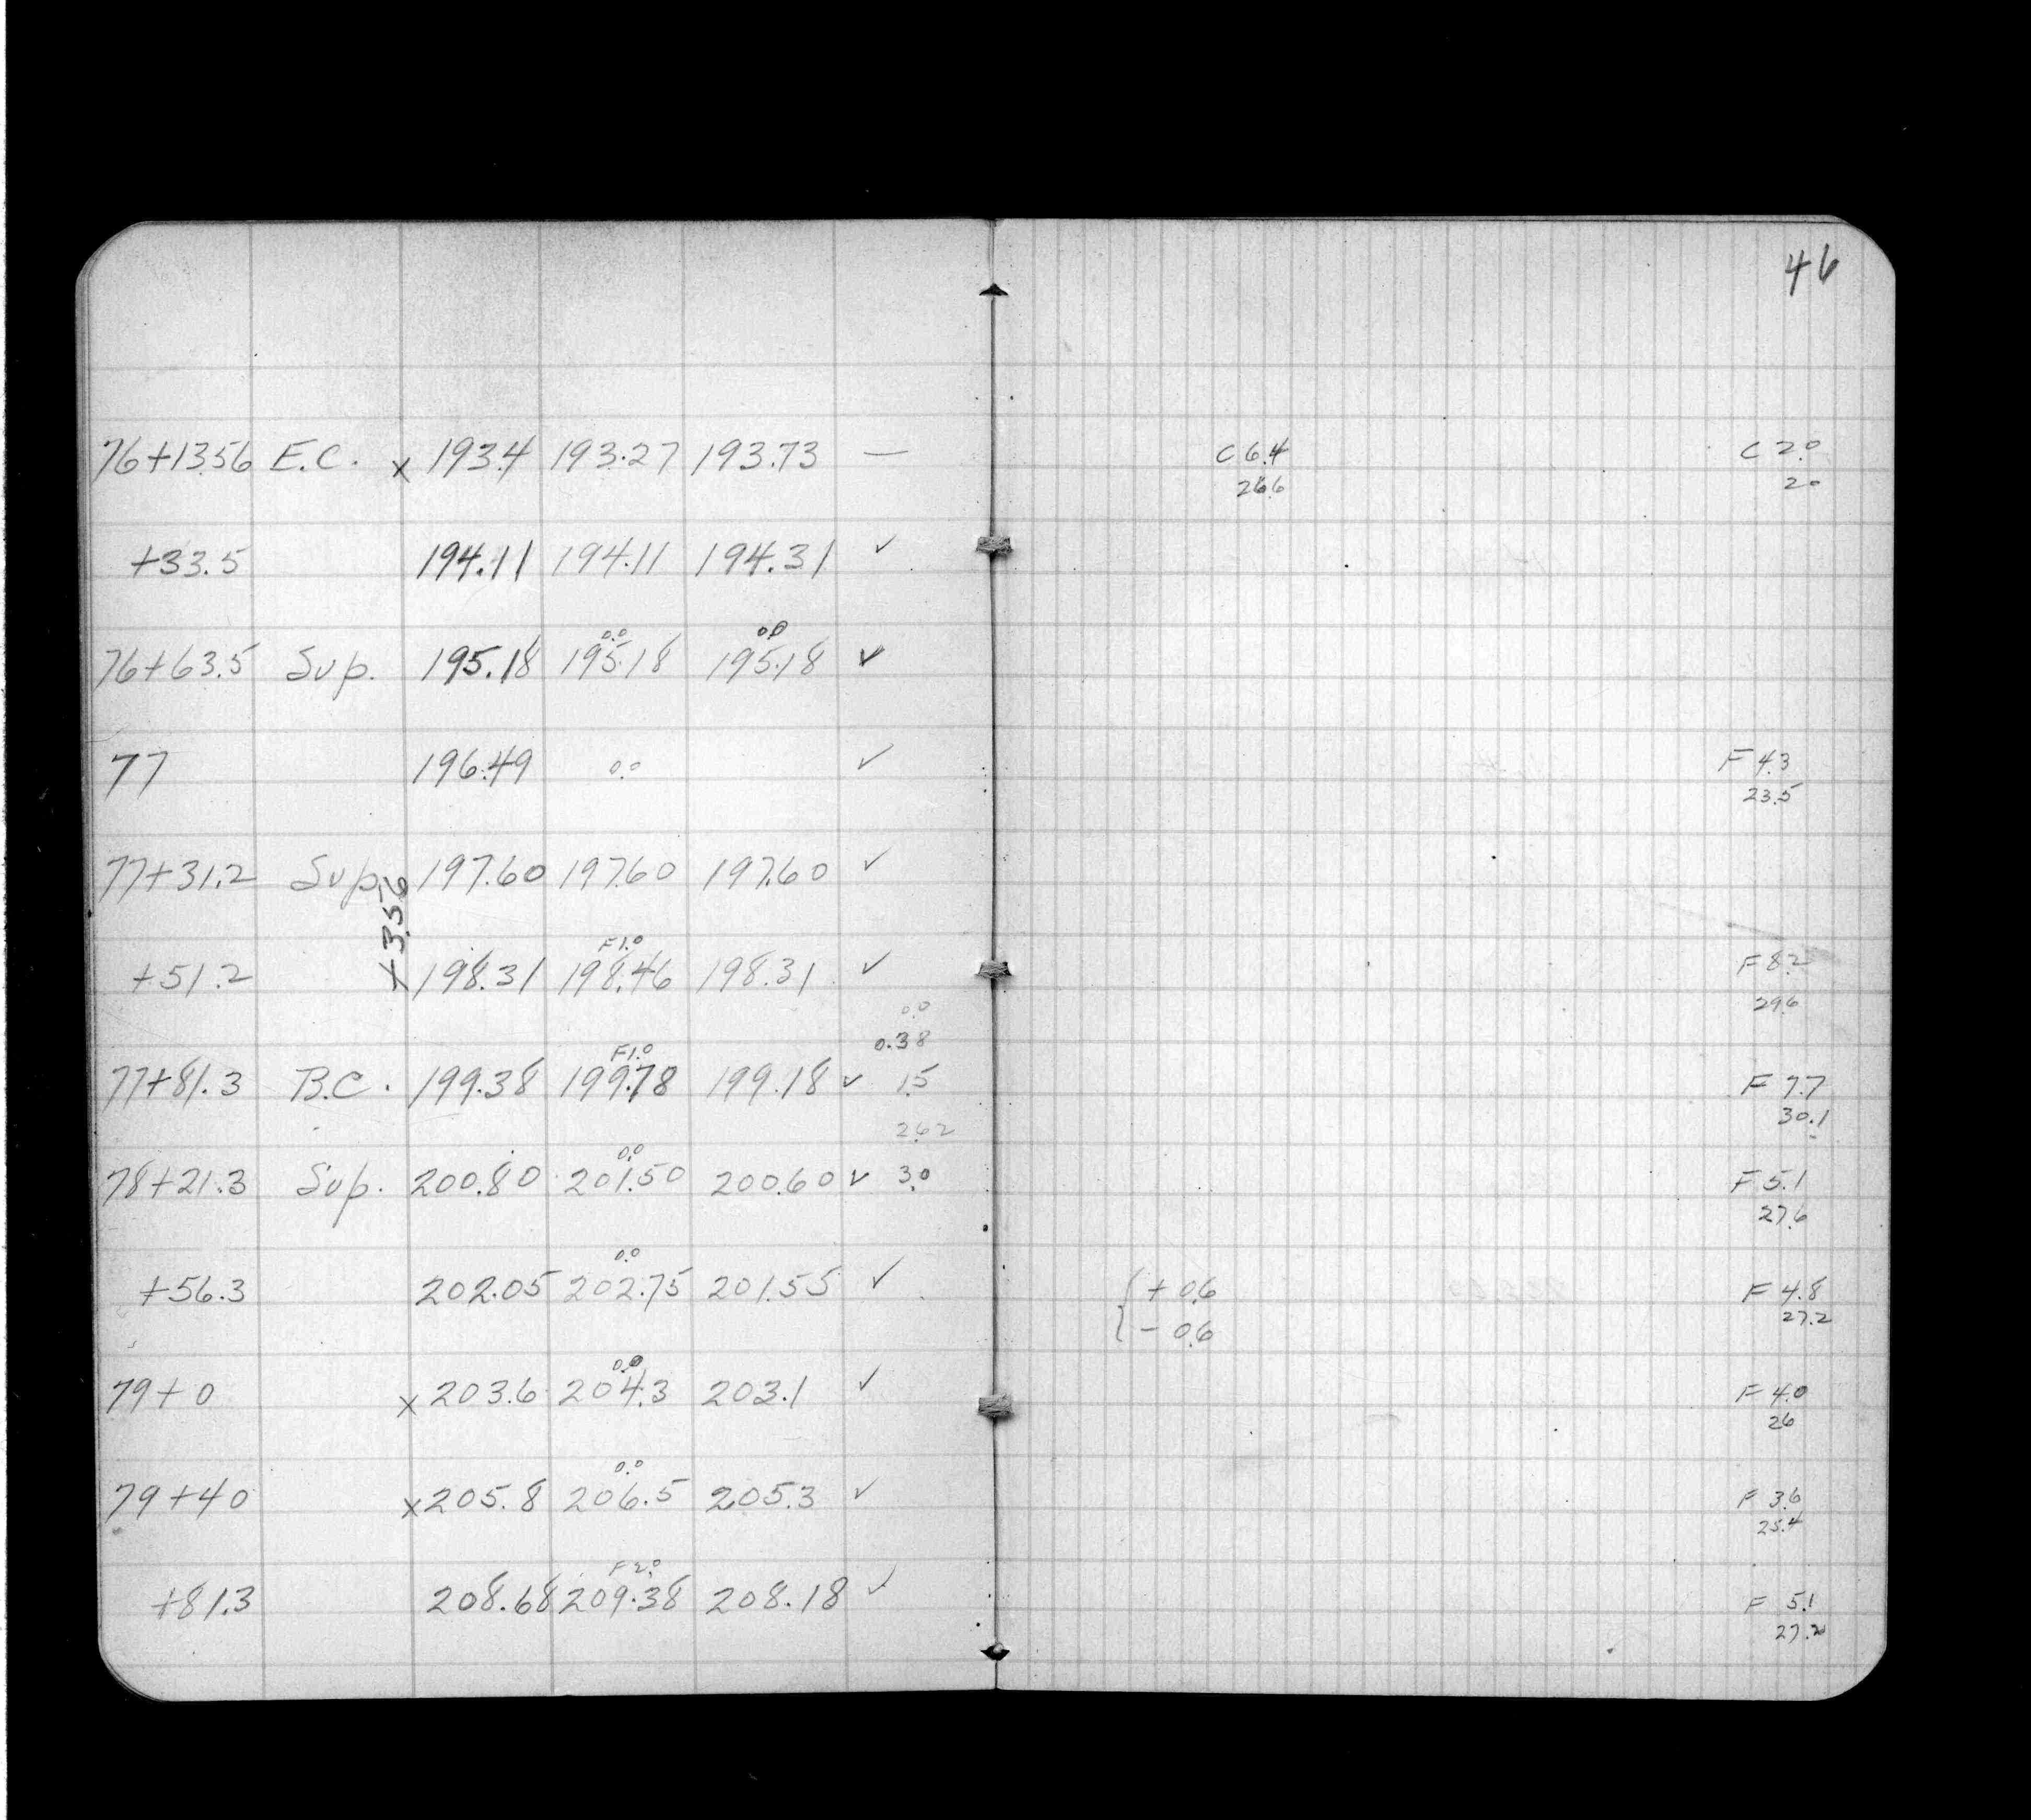 46
76+13.56 E.C. x 193.4 193.27 193.73 — C 6.4 C 2.0
26.6 20
+33.5 194.11 194.11 194.31 ✓
0.0 0.0
76+63.5 Sup. 195.18 195.18 195.18 ✓
77 196.49 0.0 ✓ F 4.3
23.5
77+31.2 Sup. 197.60 197.60 197.60 ✓
+3.56
F1.0
+51.2 198.31 198.46 198.31 ✓ F 8.2
0.0 29.6
0.38
F1.0
77+81.3 B.C. 199.38 199.78 199.18 ✓ 1.5 F 7.7
2.62 30.1
0.0
78+21.3 Sup. 200.80 201.50 200.60 ✓ 3.0 F 5.1
27.6
0.0
+56.3 202.05 202.75 201.55 ✓ { + 0.6 F 4.8
- 0.6 27.2
0.0
79+0 x 203.6 204.3 203.1 ✓ F 4.0
26
0.0
79+40 x 205.8 206.5 205.3 ✓ F 3.6
25.4
F 2.0
+81.3 208.68 209.38 208.18 ✓ F 5.1
27.2